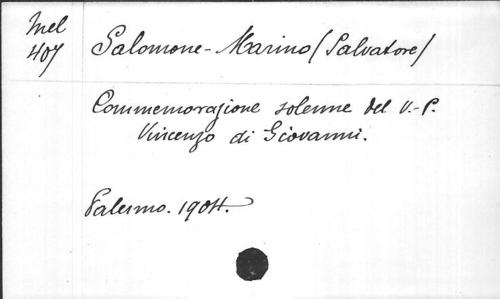 Mel
407
Salomone-Marino (Salvatore)
Commemorazione solenne del V.-P.
Vincenzo di Giovanni.
Palermo. 1904.